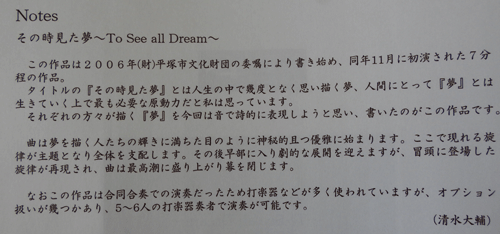 Notes
その時見た夢～To See all Dream～
この作品は２００６年(財)平塚市文化財団の委嘱により書き始め、同年11月に初演された７分
程の作品。
タイトルの『その時見た夢』とは人生の中で幾度となく思い描く夢、人間にとって『夢』とは
生きていく上で最も必要な原動力だと私は思っています。
それぞれの方々が描く『夢』を今回は音で詩的に表現しようと思い、書いたのがこの作品です。
曲は夢を描く人たちの輝きに満ちた目のように神秘的且つ優雅に始まります。ここで現れる旋
律が主題となり全体を支配します。その後早部に入り劇的な展開を迎えますが、冒頭に登場した
旋律が再現され、曲は最高潮に盛り上がり幕を閉じます。
なおこの作品は合同合奏での演奏だったため打楽器などが多く使われていますが、オプション
扱いが幾つかあり、5～6人の打楽器奏者で演奏が可能です。
(清水大輔)